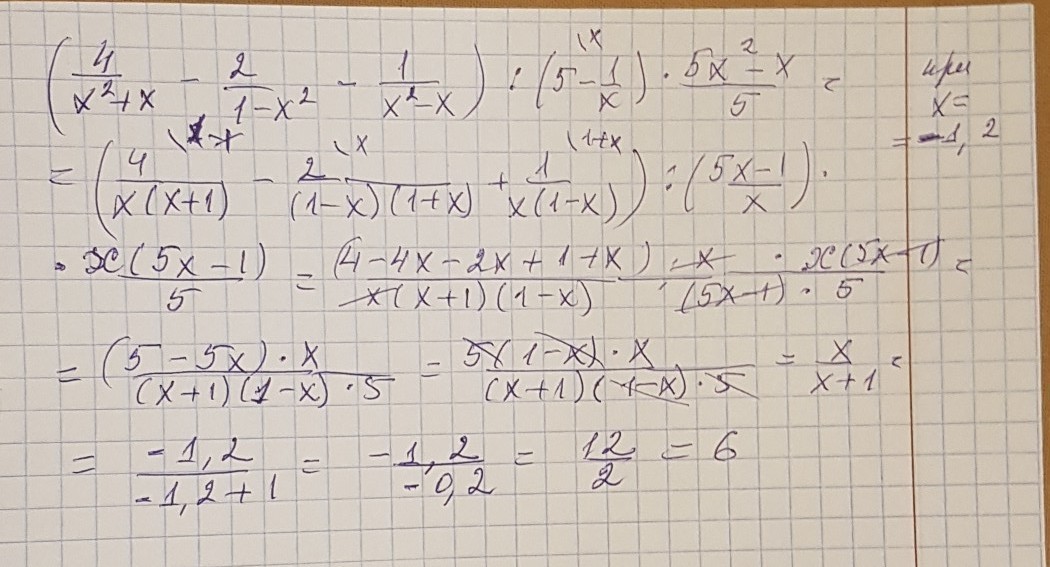 (4/(x²+x) − 2/(1−x²) − 1/(x²−x)) : (5 − 1/x)\x · (5x²−x)/5 = при x= =−1,2
= (4/(x(x+1))\1−x − 2/((1−x)(1+x))\x + 1/(x(1−x))\1+x) : ((5x−1)/x) ·
· x(5x−1)/5 = (4−4x−2x+1+x)/(x(x+1)(1−x)) · x · x(5x−1)/((5x−1) · 5) =
= (5−5x) · x/((x+1)(1−x) · 5) = 5(1−x) · x/((x+1)(1−x) · 5) = x/(x+1) =
= −1,2/(−1,2+1) = −1,2/−0,2 = 12/2 = 6